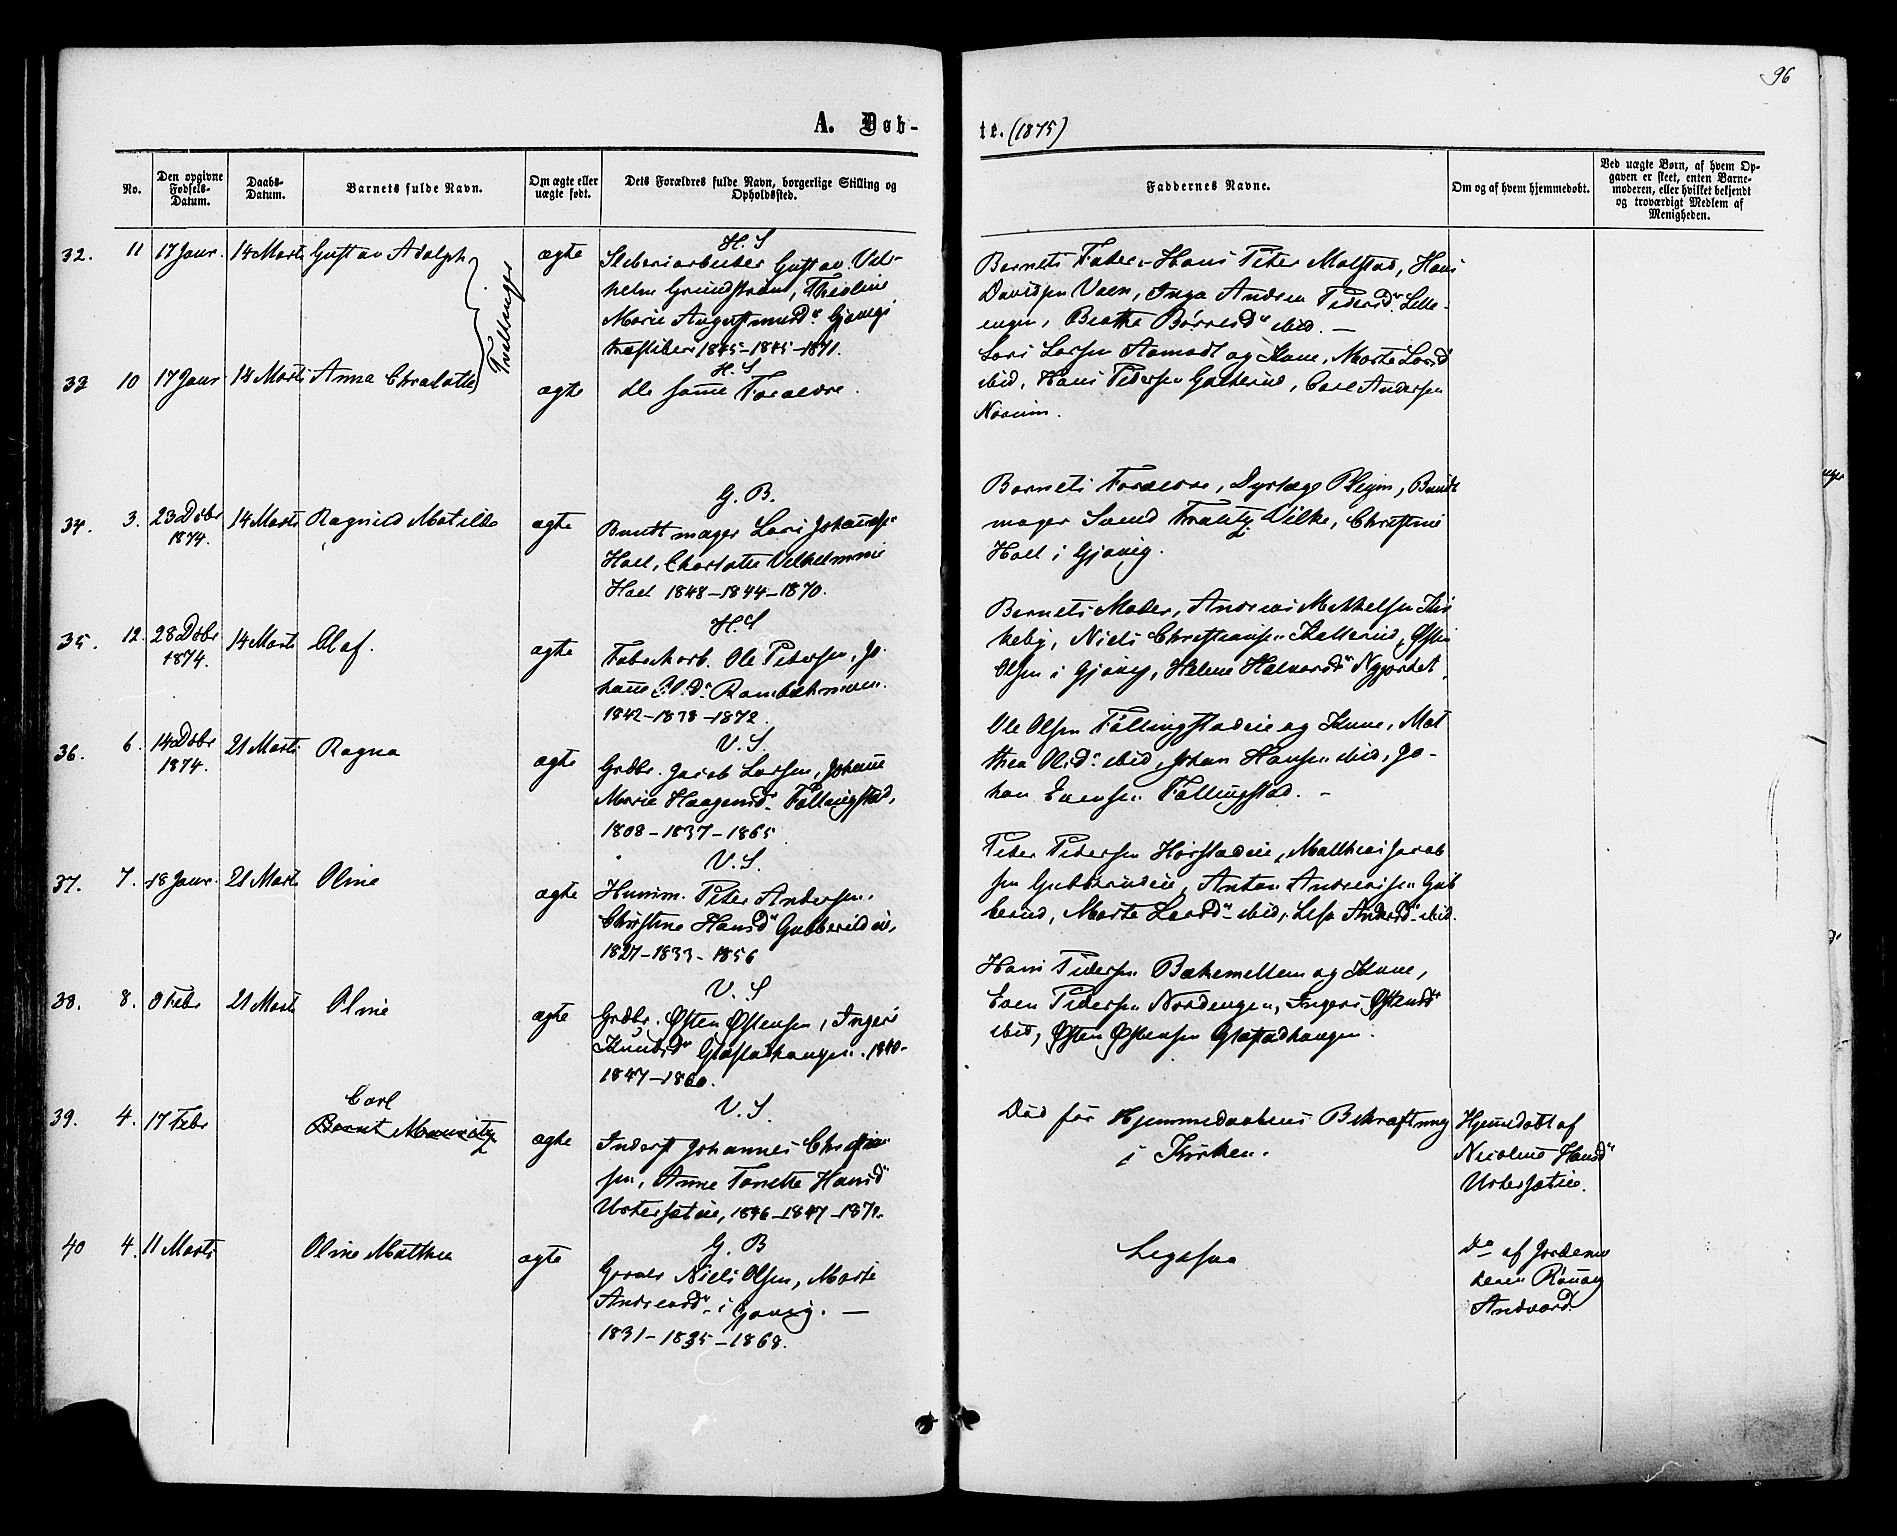 96
A. Døb-
te. (1875)
No.
Den opgivne Fødsels-Datum.
Daabs-Datum.
Barnets fulde Navn.
Om ægte eller uægte født.
Dets Forældres fulde Navn, borgerlige Stilling og Opholdssted.
Faddernes Navne.
Om og af hvem hjemmedøbt.
Ved uægte Børn, af hvem Op-
gaven er skeet, enten Barne-
moderen, eller hvilket bekjendt
og troværdigt Medlem af
Menigheden.
32. 11 17 Janr. 14 Marts Gustav Adolph ægte
Tvillinger
H. S
Gustav Vil-
helm Grundstrøm,
Marie Gjøvigs
1845-1845-1871.
Barnets Fader, Hans Peter Molstad, Hans
Davidsen Inga Andrea Pedersd. Lille-
engen, Beathe Børresd. ibid. —
33 10 17 Janr 14 Marts Anna ægte
H. S
de samme Forældre.
Lars Larsen Aamodt og Kone, Marte Larsd
ibid, Hans Pedersen Carl Andersen
34. 3. 23 Dcbr 1874. 14 Marts Ragnild Matilde ægte
G. B.
Buntmager Lars Johannsn
Hoel, Charlotte Vilhelmine
Hoel 1848-1844-1870.
Barnets Forældre, Dyrlæge Bundt
mager Svend Vilke, Christine
Hoel i Gjøvig.
35. 12. 28 Dcbr 1874. 14 Marts Olaf. ægte
H. S
Ole Petersen, Jo-
hanne Ol.d.
1842-1838-1872.
Barnets Moder, Andreas Mikkelsen Kir
keby, Niels Christiansn Østen
Olsen i Gjøvig, Helene Halvorsd
36. 6. 14 Dcbr 1874. 21 Marts Ragna ægte
V. S.
Grdbr. Jacob Larsen, Johanne
Marie Haagensd. Fallingstad,
1808-1837-1865
Ole Olsen Fallingstadeie og Kone, Mat
thea Ols.d. ibid, Johan Hansen ibid, Jo-
han Evensn Fallingstad. —
37. 7. 18 Janr. 21 Marts Oline ægte
V. S.
Husmn. Peter Andersen,
Christine Hansd
1827-1833-1856
Peter Pedersen Matthias Jacob
sen Anton Andreassn Gub
berud, Marte Larsd ibid, Lisa Andersd ibid.
38. 8. 8 Febr 21 Marts Oline ægte
V. S
Grdbr. Østen Østensen, Inger
Knudsd 1840-
1847-1860.
Hans Pedersn Bakemellem og Kone,
Even Pedersen Nordengen, Inger Østensd
ibid, Østen Østensen
39. 4. 17 Febr Carl
Bernt Mauritz ægte
V. S.
Inderst Johannes Christian
sen, Anne Tonetta Hansd
1846-1847-1871.
Død før Hjemmedaabens Bekræftning
i Kirken.
Hjemmedøbt af
Nicoline Hansd
40 4. 11 Marts Oline Mathea ægte
G. B
Niels Olsen, Marte
Andreasd. i Gjøvig. —
1831-1835-1868.
Ligesaa
Do af Jordemo
deren Rønnaug